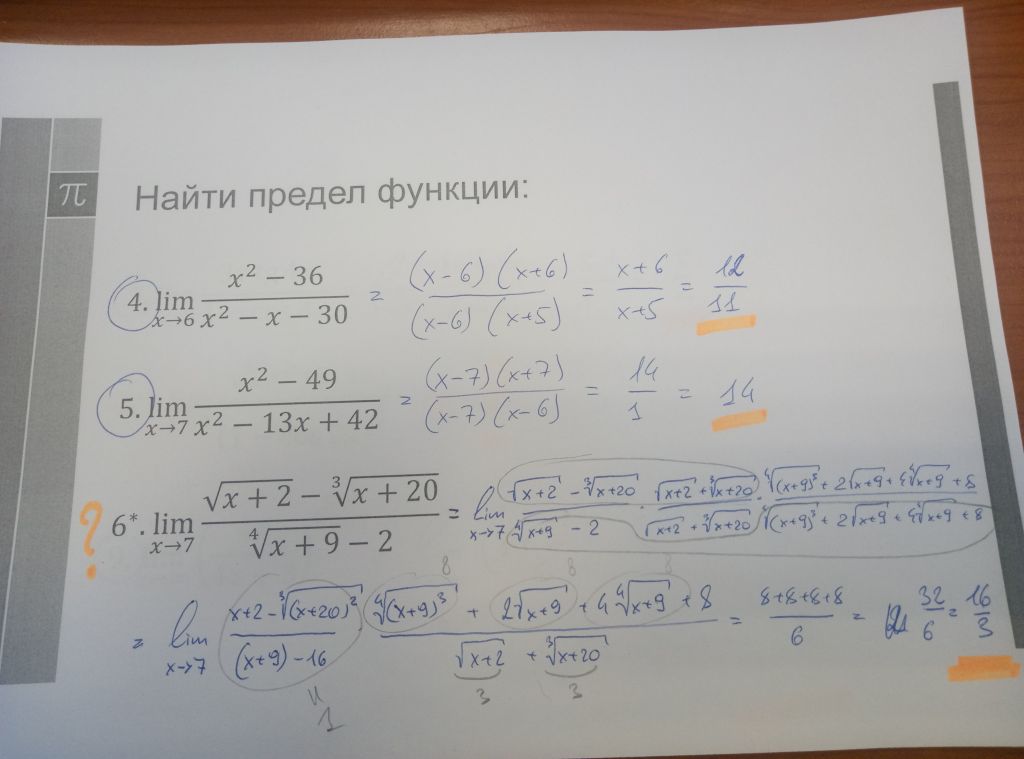 π
Найти предел функции:
4. lim x→6 (x² − 36)/(x² − x − 30) = ((x−6)(x+6))/((x−6)(x+5)) = (x+6)/(x+5) = 12/11
5. lim x→7 (x² − 49)/(x² − 13x + 42) = ((x−7)(x+7))/((x−7)(x−6)) = 14/1 = 14
? 6*. lim x→7 (√(x + 2) − ∛(x + 20))/(∜(x + 9) − 2) = lim x→7 (√(x+2) − ∛(x+20))/(∜(x+9) − 2) · (√(x+2) + ∛(x+20))/(√(x+2) + ∛(x+20)) · (∜(x+9)³ + 2√(x+9) + 4∜(x+9) + 8)/(∜(x+9)³ + 2√(x+9) + 4∜(x+9) + 8)
8 8 8
= lim x→7 (x+2 − ∛(x+20)²)/((x+9) − 16) · (∜(x+9)³ + 2√(x+9) + 4∜(x+9) + 8)/(√(x+2) + ∛(x+20)) = (8+8+8+8)/6 = 32/6 = 16/3
3 3
1